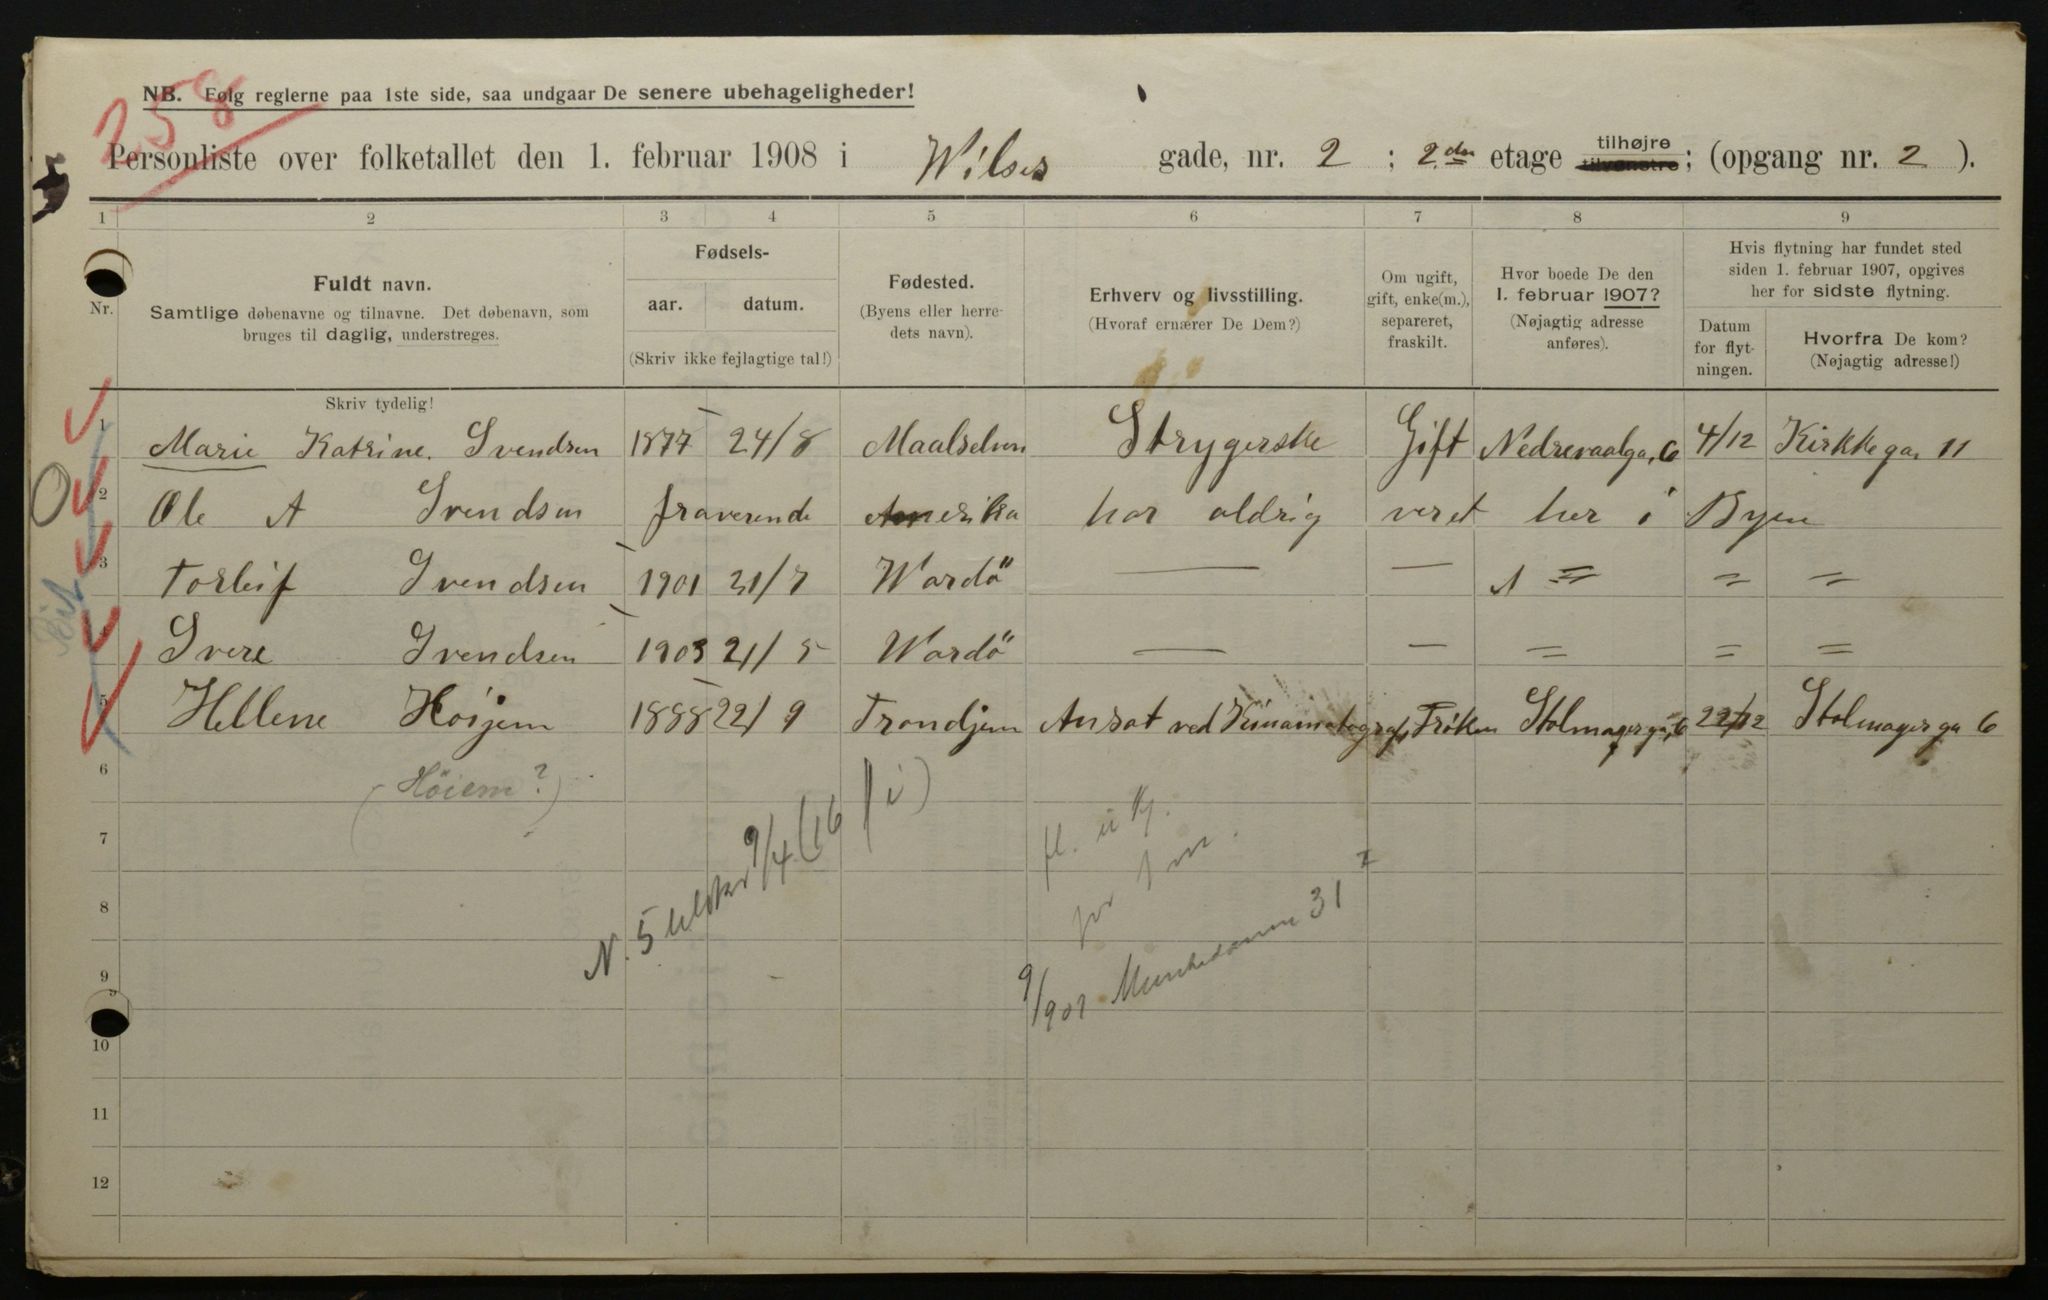 258
NB. Følg reglerne paa 1ste side, saa undgaar De senere ubehageligheder!
Personliste over folketallet den 1. februar 1908 i Wilses gade, nr. 2 ; 2.den etage tilhøjre tilvenstre ; (opgang nr. 2 ).
1 2 3 4 5 6 7 8 9
Nr.
Fuldt navn.
Samtlige døbenavne og tilnavne. Det døbenavn, som
bruges til daglig, understreges.
Skriv tydelig!
Fødsels-
aar. datum.
(Skriv ikke fejlagtige tal!)
Fødested.
(Byens eller herre-
dets navn).
Erhverv og livsstilling.
(Hvoraf ernærer De Dem?)
Om ugift,
gift, enke(m.),
separeret,
fraskilt.
Hvor boede De den
1. februar 1907?
(Nøjagtig adresse
anføres).
Hvis flytning har fundet sted
siden 1. februar 1907, opgives
her for sidste flytning.
Datum
for flyt-
ningen.
Hvorfra De kom?
(Nøjagtig adresse!)
1 Marie Katrine. Svendsen 1877 24/8 Maalselven Strygerske Gift Nedrevaalga, 6 4/12 Kirkkega, 11
2 Ole A Svendsen fraverende Amerika har aldrig veret her i Byen
3 Torleif Svendsen 1901 21/7 Wardö — — = = =
4 Svere Svendsen 1903 21/5 Wardö — — = = =
5 Hellene Hoijem 1888 22/9 Trondjem Ansat ved Kinamatograf, Fröken Stolmagerga, 6 22/12 Stolmagerga 6
6 (Höiem?)
7
8
9
10
11
12
N. 5 9/4 (16
for
9/907 Munkedamm 31